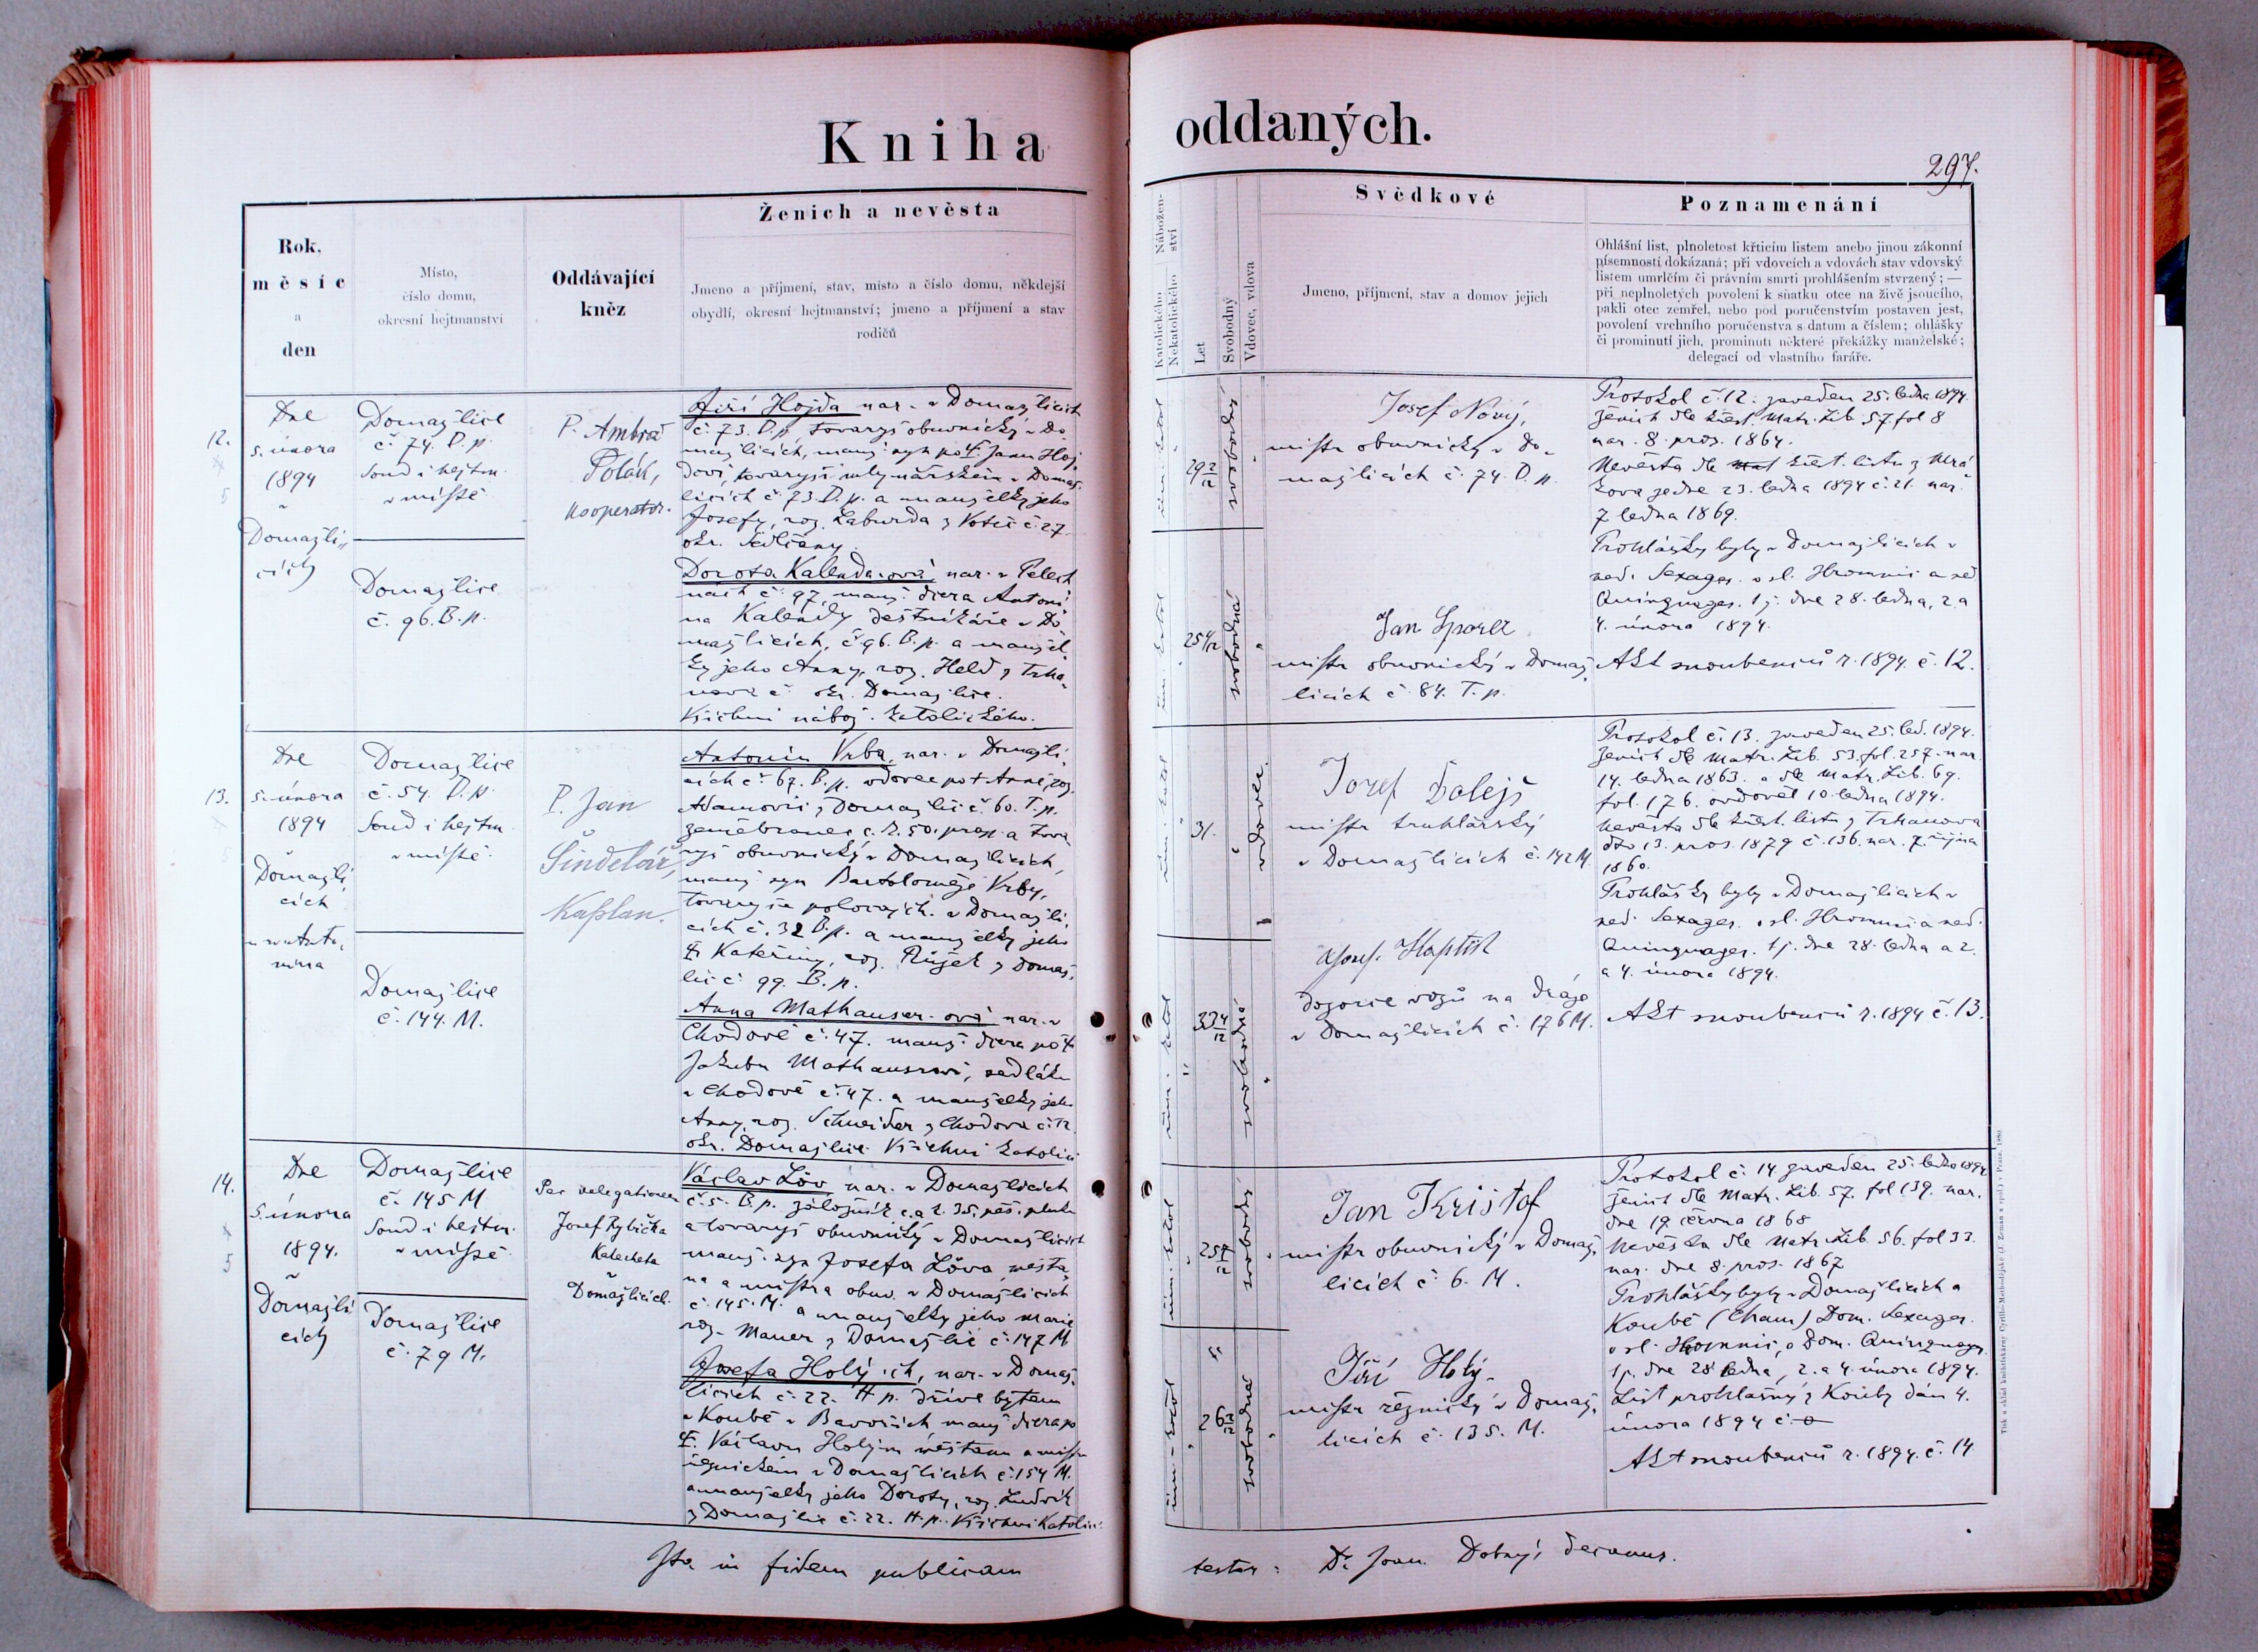 Kniha oddaných.
297.
Rok, měsíc a den
Místo, číslo domu, okresní hejtmanství
Oddávající kněz
Ženich a nevěsta
Jmeno a příjmení, stav, místo a číslo domu, někdejší
obydlí, okresní hejtmanství; jmeno a příjmení a stav
rodičů
Náboženství
Katolického
Nekatolického
Let
Svobodný
Vdovec, vdova
Svědkové
Jmeno, příjmení, stav a domov jejich
Poznamenání
Ohlášní list, plnoletost křticím listem anebo jinou zákonní
písemností dokázaná; při vdovcích a vdovách stav vdovský
listem umrlčím či právním smrti prohlášením stvrzený; —
při neplnoletých povolení k sňatku otce na živě jsoucího,
pakli otec zemřel, nebo pod poručenstvím postaven jest,
povolení vrchního poručenstva s datum a číslem; ohlášky
či prominutí jich, prominutí některé překážky manželské;
delegací od vlastního faráře.
12.
Dne
5. února
1894
v
Domažli
cích
Domažlice
č. 74. D. p.
soud i hejtm.
v místě
Domažlice
č. 96. B. p.
P. Ambrož
Polák,
kooperator.
Jiří Hojda nar. v Domažlicích
č. 73. D. p. tovaryš obuvnický v Do
mažlicích, manž. syn po Janu Hoj
dovi, tovaryši mlynářském v Domaž
licích č. 73. D. p. a manželky jeho
Josefy, roz. Laburda z Votic č. 27.
okr. Sedlčany.
Dorota Kalenda-ová, nar. v Pelech
nách č. 97, manž. dcera Antoní
na Kalendy deštníkáře v Do
mažlicích, č. 96. B. p. a manžel
ky jeho Anny, roz. Held z Trha
nova č. okr. Domažlice.
Všichni nábož. katolického.
řím. katol
29 2/12
svobodný
řím. katol
25 4/12
svobodná
Josef Nový,
mistr obuvnický v Do
mažlicích č. 74. D. p.
Jan Sporer
mistr obuvnický v Domaž
licích č. 84. T. p.
Protokol č. 12. zaveden 25. ledna 1894.
Ženich dle křest. Matr. Lib. 57 fol 8
nar. 8. pros. 1864.
Nevěsta dle křest. listu z Mrá
kova ze dne 23. ledna 1894 č. 21. nar.
7 ledna 1869.
Prohlášky byly v Domažlicích v
ned. Sexages. o sl. Hromnic a ned
Quinquages. tj. dne 28. ledna, 2. a
4. února 1894.
Akt snoubenců r. 1894. č. 12.
13.
Dne
5. února
1894
v
Domažli
cích
u sv. Anto
nína
Domažlice
č. 54. D. p.
soud i hejtm.
v místě.
Domažlice
č. 144. M.
P. Jan
Šindelář,
Kaplan.
Antonín Vrba, nar. v Domažli
cích č. 67. B. p. vdovec po † Anně, roz.
Adamovic z Domažlic č. 60. T. p.
zeměbranec a tova
ryš obuvnický v Domažlicích,
manž. syn Bartoloměje Vrby,
v Domažli
cích č. 32 D. p. a manželky jeho
† Kateřiny, roz. Růžek z Domaž
lic č. 99. B. p.
Anna Mathauser-ová nar. v
Chodově č. 47. manž. dcera po †
Jakubu Mathauserovi, sedláku
v Chodově č. 47. a manželky jeho
Anny, roz. Schneider z Chodova č. 12.
okr. Domažlice. Všichni katolíci
řím. katol
31.
vdovec
řím. katol
33 4/12
svobodná
Josef Dolejš
mistr truhlářský
v Domažlicích č. 142 M.
Josef Haptík
dozorce vozů na dráze
v Domažlicích č. 176 M.
Protokol č. 13. zaveden 25. led. 1894.
Ženich dle Matr. Lib. 53. fol. 257. nar.
14. ledna 1863. a dle Matr. Lib. 69.
fol. 176. ovdověl 10. ledna 1894.
Nevěsta dle křest. listu z Trhanova
ddo 13. pros. 1879 č. 136. nar. 7. října
1860.
Prohlášky byly v Domažlicích v
ned. Sexages. o sl. Hromnic a ned.
Quinquages. tj. dne 28. ledna a 2.
a 4. února 1894.
Akt snoubenců r. 1894 č. 13.
14.
Dne
5. února
1894.
v
Domažli
cích
Domažlice
č. 145 M
Soud i hejtm.
v místě
Domažlice
č. 79 M.
Per delegationem
Josef Rybička
Katecheta
v
Domažlicích.
Václav Löv nar. v Domažlicích
č. 5. B. p. záložník c. a k. 35. pěš. pluku
a tovaryš obuvnický v Domažlicích
manž. syn Josefa Löva, měšťa
na a mistra obuv. v Domažlicích
č. 145. M. a manželky jeho Marie
roz. Mauer z Domažlic č. 147 M
Josefa Holý-ch, nar. v Domaž
licích č. 22. H. p. dříve bytem
v Koubě v Bavořích manž. dcera po
†. Václavu Holým měšťanu a mistru
řeznickém v Domažlicích č. 154 M.
a manželky jeho Doroty, roz. Ludvík
z Domažlic č. 22. H. p. Všichni Katolíci
řím. katol
25 7/12
svobodný
řím. katol
26
svobodná
Jan Krištof
mistr obuvnický v Domaž
licích č. 6. M.
Jiří Holý.
mistr řeznický v Domaž
licích č. 135. M.
Protokol č. 14 zaveden 25. ledna 1894
Ženich dle Matr. Lib. 57. fol 139. nar.
dne 19. června 1868
Nevěsta dle Matr. Lib. 56. fol 33.
nar. dne 8. pros. 1867
Prohlášky byly v Domažlicích a
Koubě (Cham) Dom. Sexages.
o sl. Hromnic, a Dom. Quinquages.
tj. dne 28 ledna, 2. a 4. února 1894.
List prohlášný z Kouby dán 4.
února 1894 č. 0
Akt snoubenců r. 1894. č. 14
Ita in fidem publicam
testor: Dr. Joan. Dobrý, decanus.